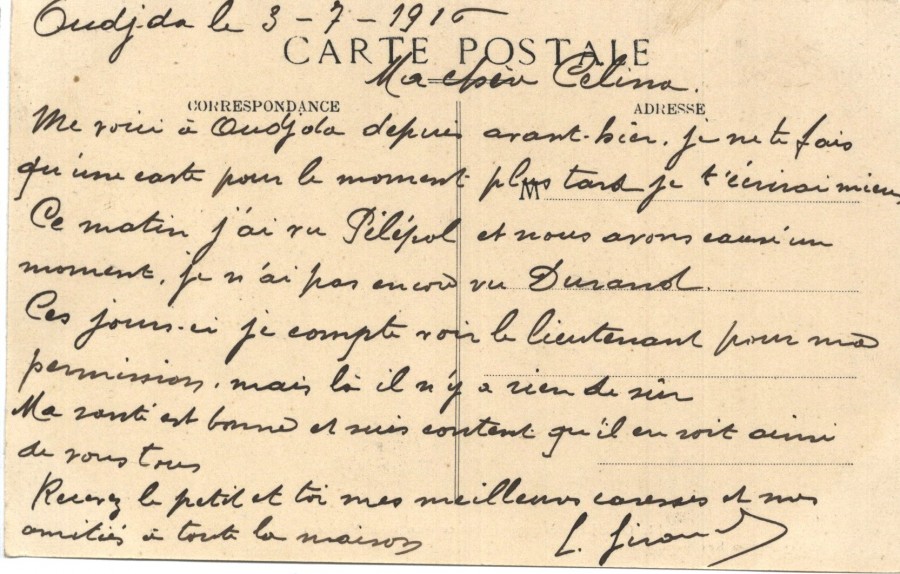 Oudjda le 3-7-1916
CARTE POSTALE
Ma chère Celina.
CORRESPONDANCE
ADRESSE
Me voici à Oudjda depuis avant-hier, je ne te fais
qu'une carte pour le moment plus tard je t'écrirai mieux
M
Ce matin j'ai vu Pélépol et nous avons causé un
moment, je n'ai pas encore vu Durand.
Ces jours-ci je compte voir le lieutenant pour ma
permission, mais là il n'y a rien de sûr
Ma santé est bonne et suis content qu'il en soit ainsi
de vous tous
Recevez le petit et toi mes meilleures caresses et mes
amitiés à toute la maison
L. Giraud